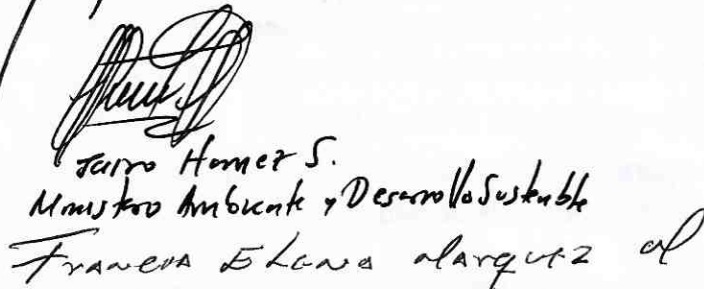 Jairo Homez S.
Ministro Ambiente y Desarrollo Sostenible
Francia Elena Marquez M